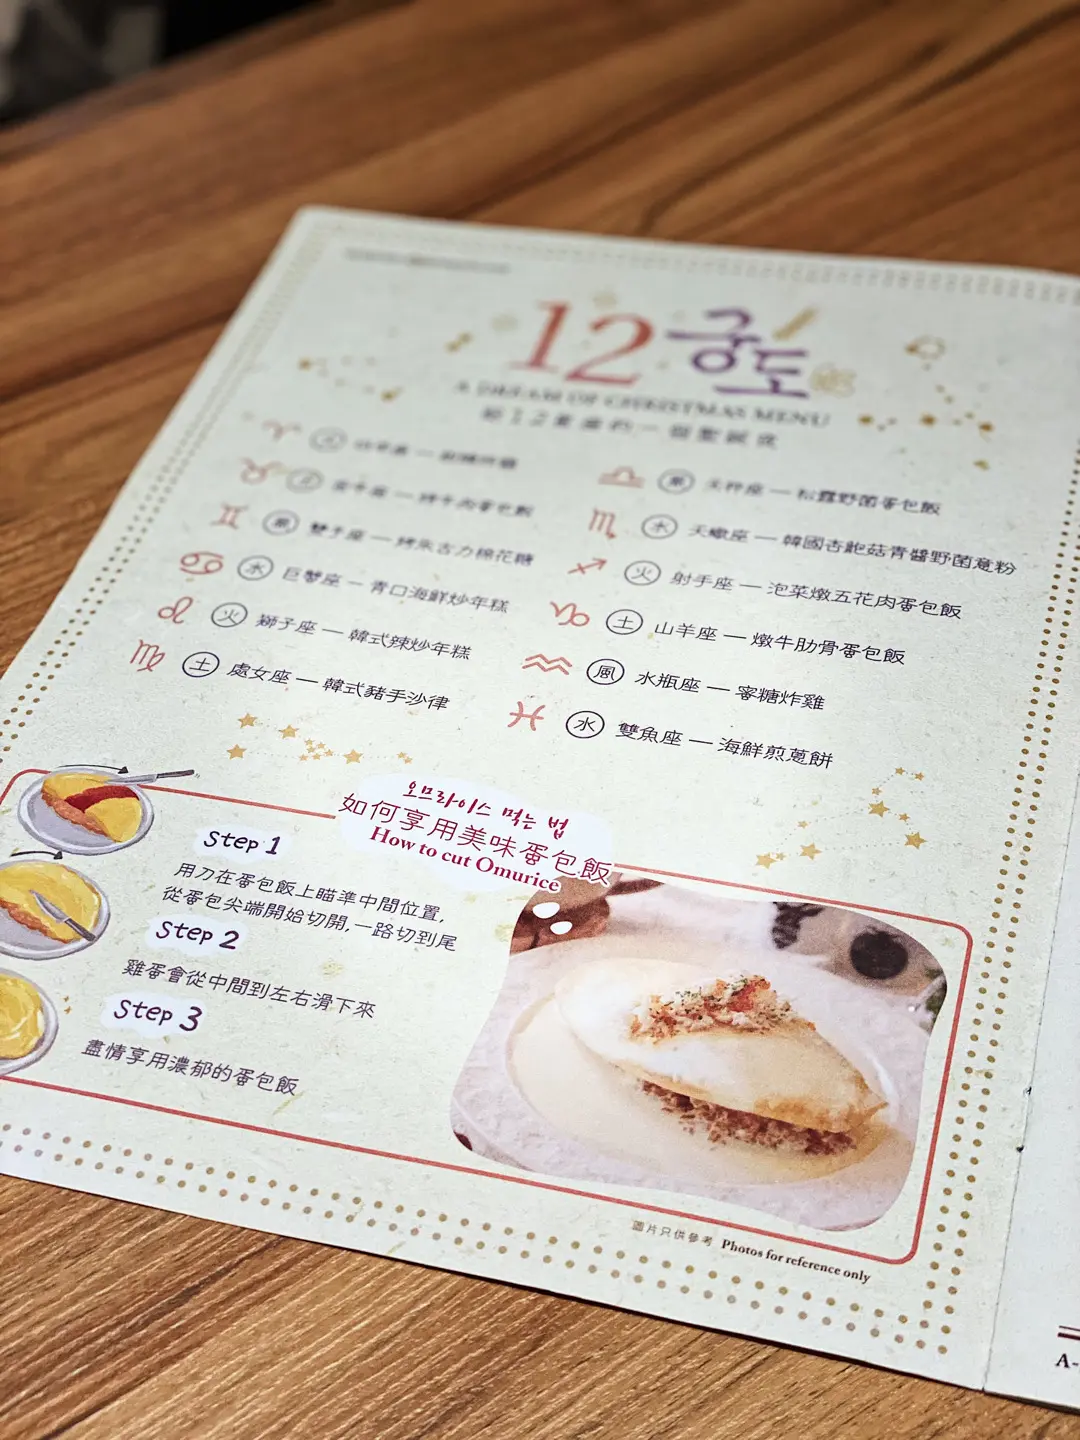 12 궁도
A DREAM OF CHRISTMAS MENU
土 金牛座 — 烤牛肉蛋包飯
風 雙子座 — 烤朱古力棉花糖
水 巨蟹座 — 青口海鮮炒年糕
火 獅子座 — 韓式辣炒年糕
土 處女座 — 韓式豬手沙律
風 天秤座 — 松露野菌蛋包飯
水 天蠍座 — 韓國杏鮑菇青醬野菌意粉
火 射手座 — 泡菜燉五花肉蛋包飯
土 山羊座 — 燉牛肋骨蛋包飯
風 水瓶座 — 蜜糖炸雞
水 雙魚座 — 海鮮煎蔥餅
오므라이스 먹는 법
如何享用美味蛋包飯
How to cut Omurice
Step 1
用刀在蛋包飯上瞄準中間位置,
從蛋包尖端開始切開,一路切到尾
Step 2
雞蛋會從中間到左右滑下來
Step 3
盡情享用濃郁的蛋包飯
圖片只供參考 Photos for reference only
A-